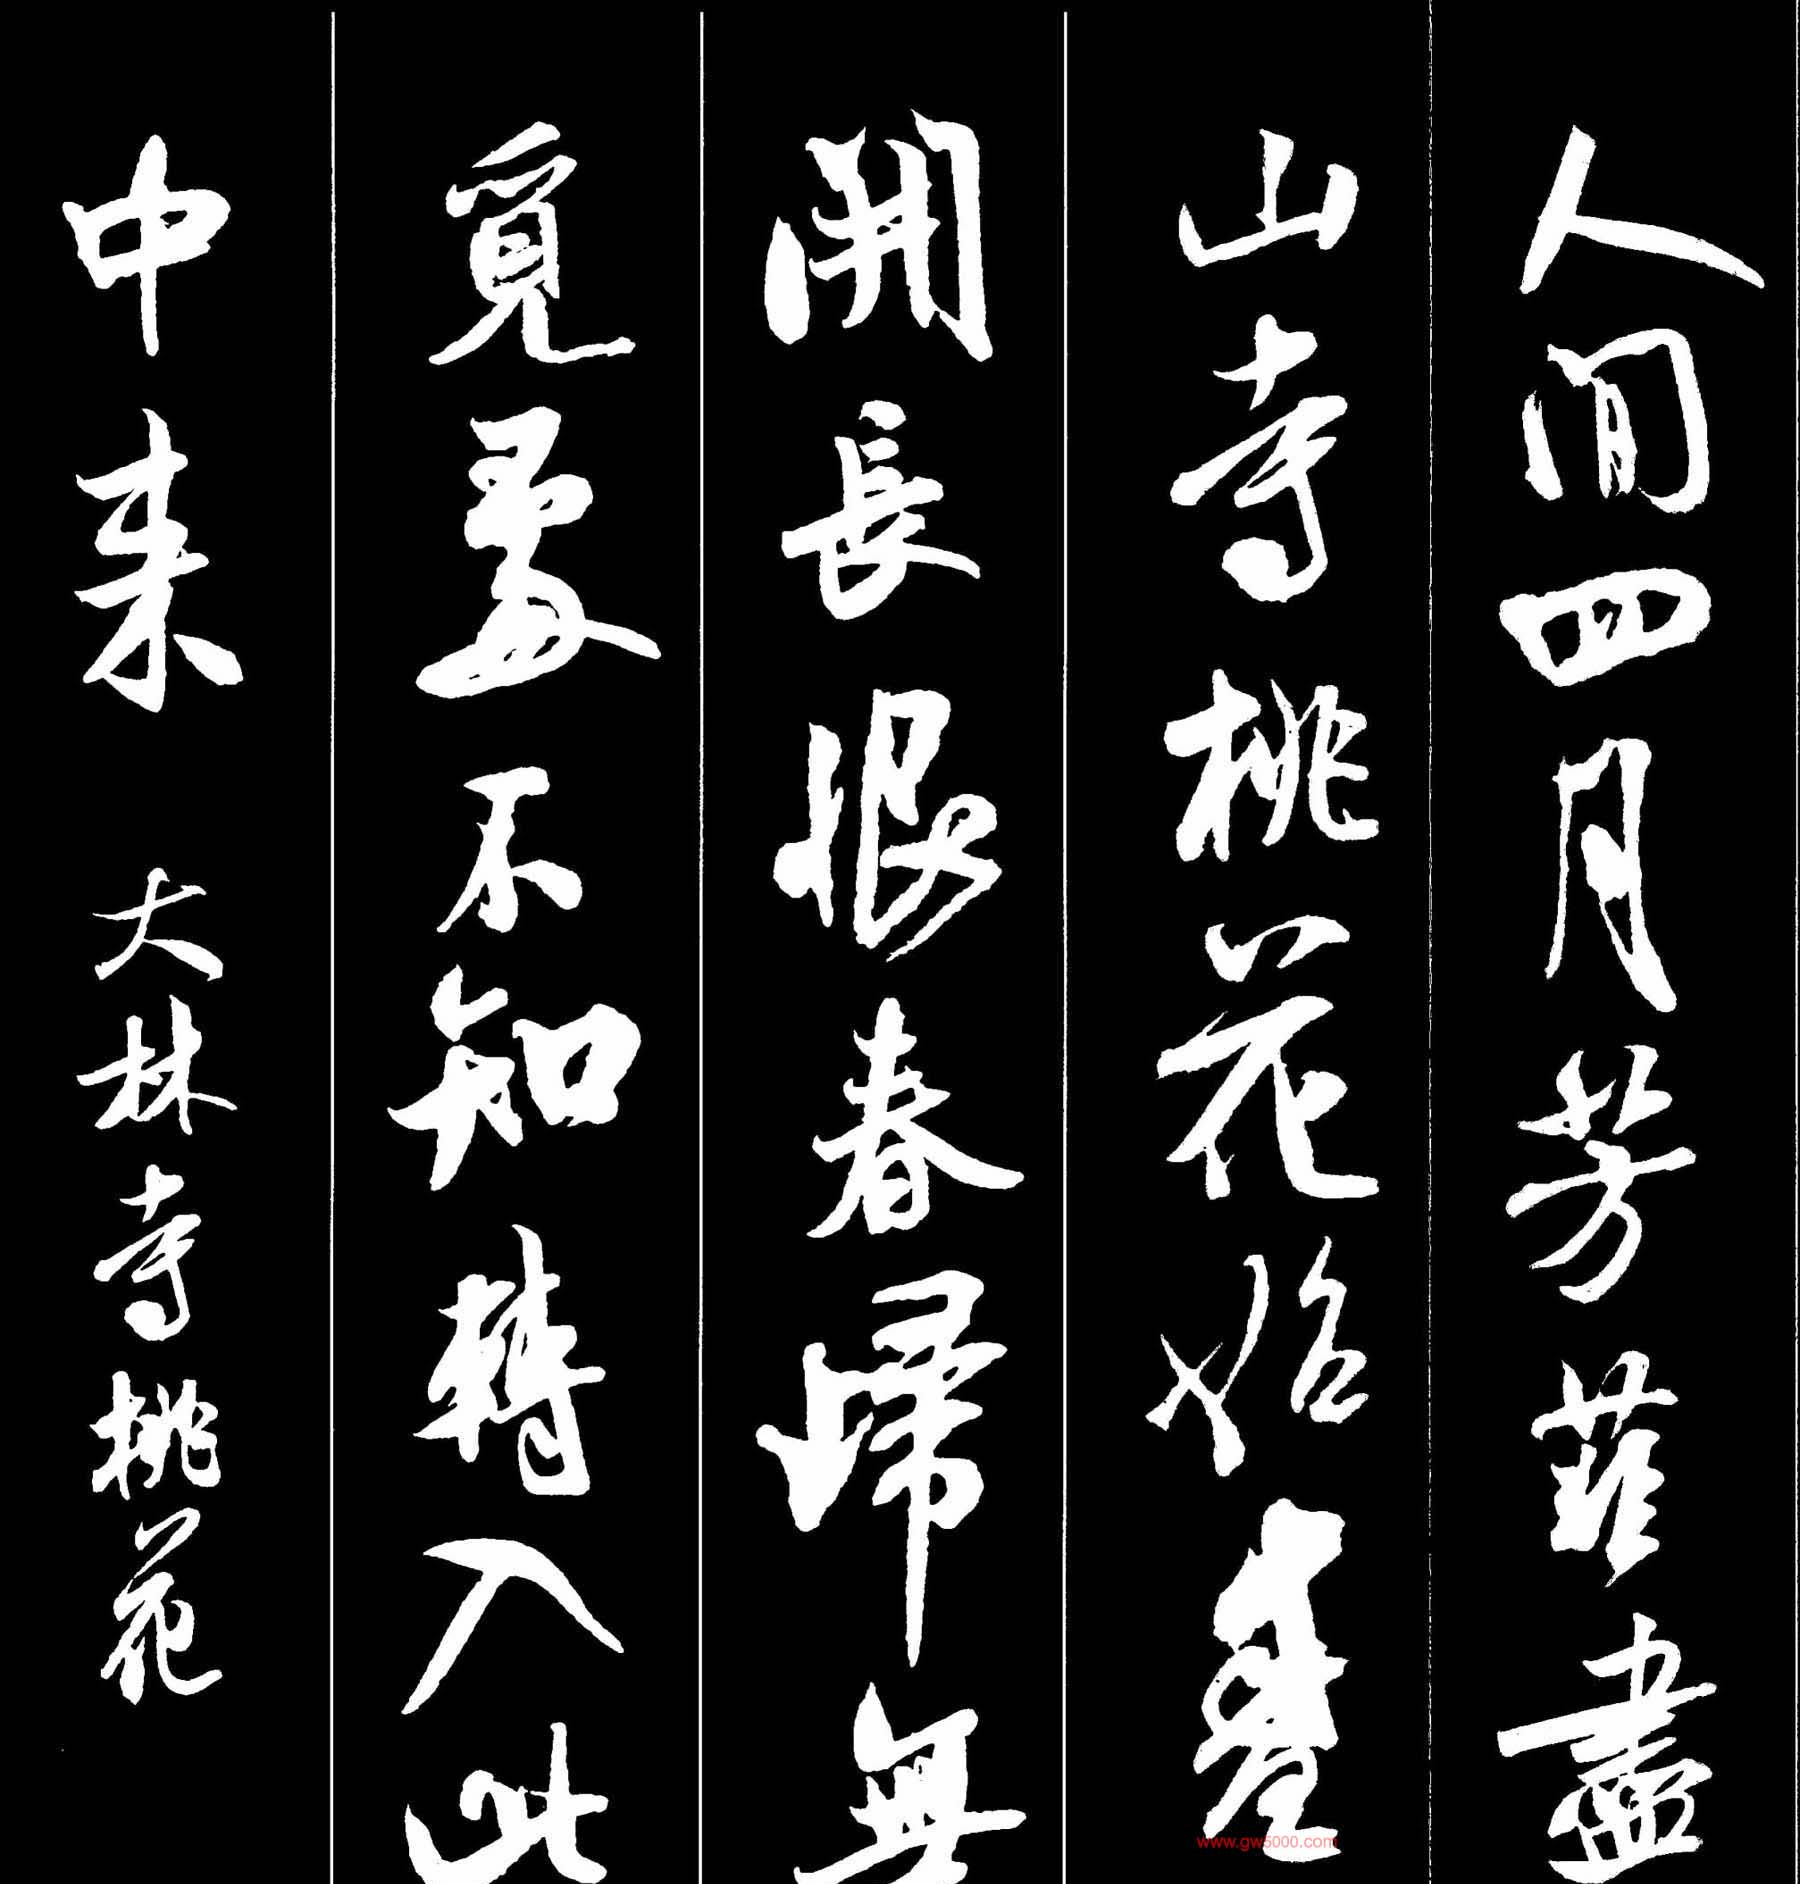 人間四月芳菲盡
山寺桃花始盛
開長恨春歸無
覓處不知轉入此
中来
大林寺桃花
www.gw5000.com